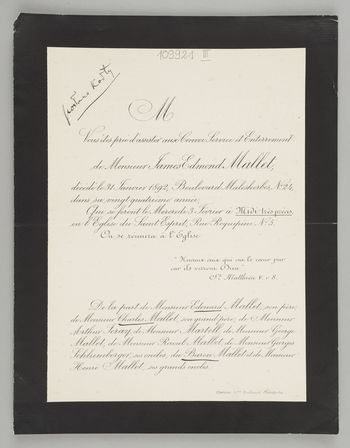 109921 III
M
Vous êtes prié d'assister aux Convoi Service & Enterrement
de Monsieur James Edmond Mallet,
décédé le 31 Janvier 1892, Boulevard Malesherbes, N° 24,
dans sa vingt quatrième année;
Qui se feront le Mercredi 3 Février à Midi très précis,
en l'Eglise du Saint Esprit, Rue Roquépine N° 5.
On se réunira à l'Eglise
"Heureux ceux qui ont le cœur pur
car ils verront Dieu"
St Matthieu V. v 8.
De la part de Monsieur Edouard Mallet, son père,
de Monsieur Charles Mallet, son grand père, de Monsieur
Arthur de Monsieur Martell de Monsieur George
Mallet, de Monsieur Raoul Mallet de Monsieur Georges
Schlumberger, ses oncles, du Baron Mallet & de Monsieur
Henri Mallet, ses grands oncles.